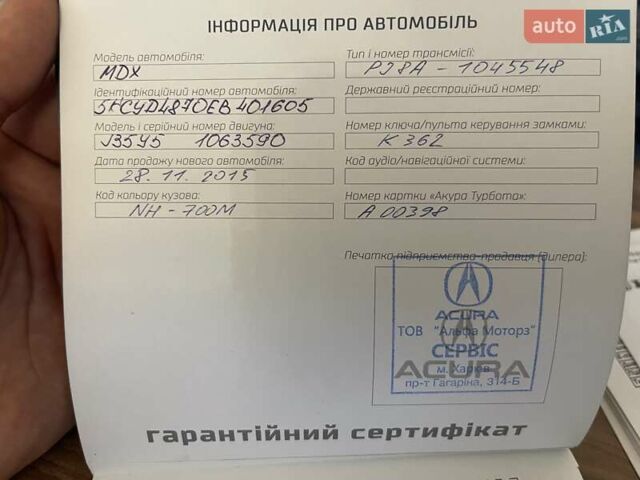 auto RIA .com
ІНФОРМАЦІЯ ПРО АВТОМОБІЛЬ
Модель автомобіля:
MDX
Тип і номер трансмісії:
PJ8A - 1045548
Ідентифікаційний номер автомобіля:
5FCYD4870EB401605
Державний реєстраційний номер:
Модель і серійний номер двигуна:
J35Y5 1063590
Номер ключа/пульта керування замками:
K 362
Дата продажу нового автомобіля:
28. 11. 2015
Код аудіо/навігаційної системи:
Код кольору кузова:
NH - 700M
Номер картки «Акура Турбота»:
A 00398
Печатка підприємства-продавця (дилера):
ACURA
ТОВ "Альфа Моторз"
СЕРВІС
ACURA
м. Харків
пр-т Гагаріна, 314-Б
гарантійний сертифікат